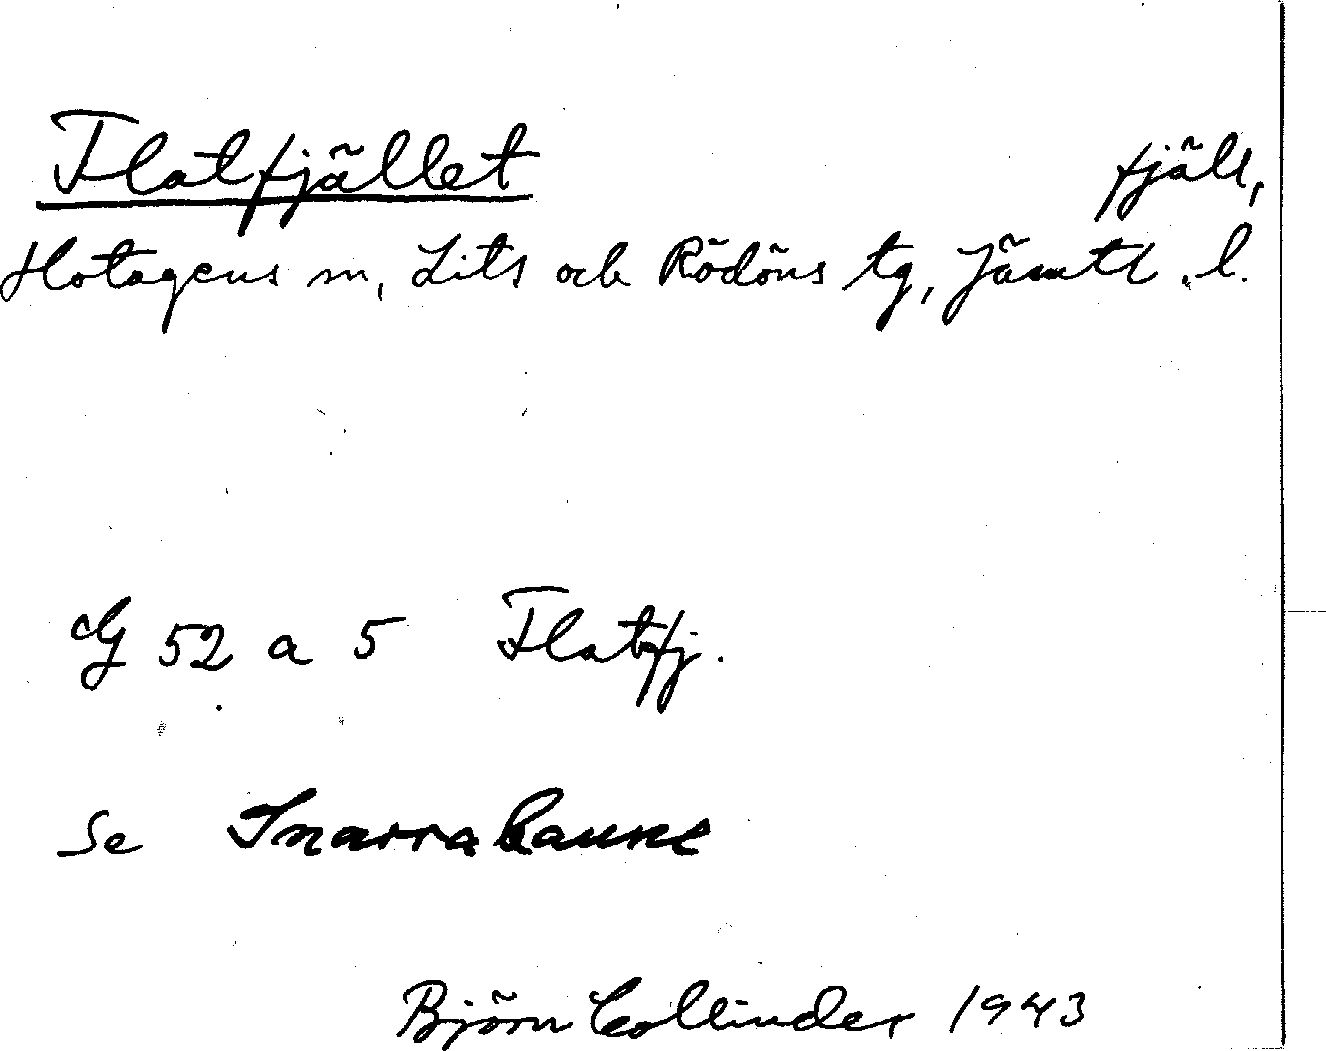 Flatfjället fjäll,
Hotagens m, Lits och Rödöns tg, Jämtl. l.
G 52 a 5 Flatfj.
Se
Björn Collinder 1943